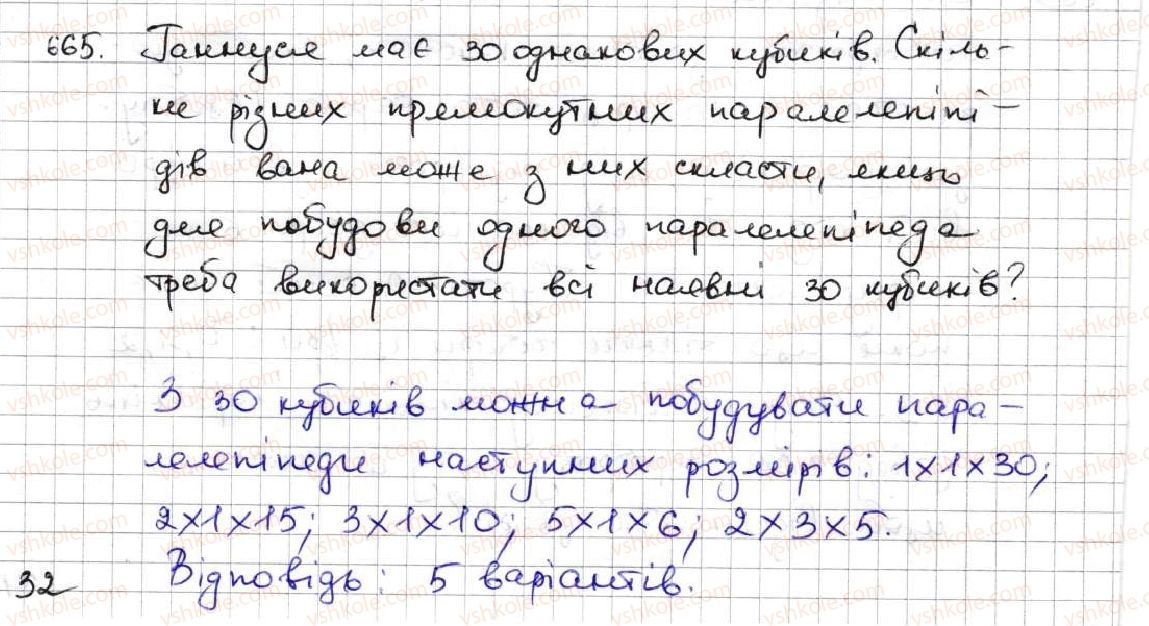 665. Ганнуся має 30 однакових кубиків. Скіль-
ки різних прямокутних паралелепіпі-
дів вана може з них скласти, якщо
для побудови одного паралелепіпеда
треба використати всі наявні 30 кубиків?
З 30 кубиків можна побудувати пара-
лелепіпеди наступних розмірів: 1x1x30;
2x1x15; 3x1x10; 5x1x6; 2x3x5.
Відповідь: 5 варіантів.
32